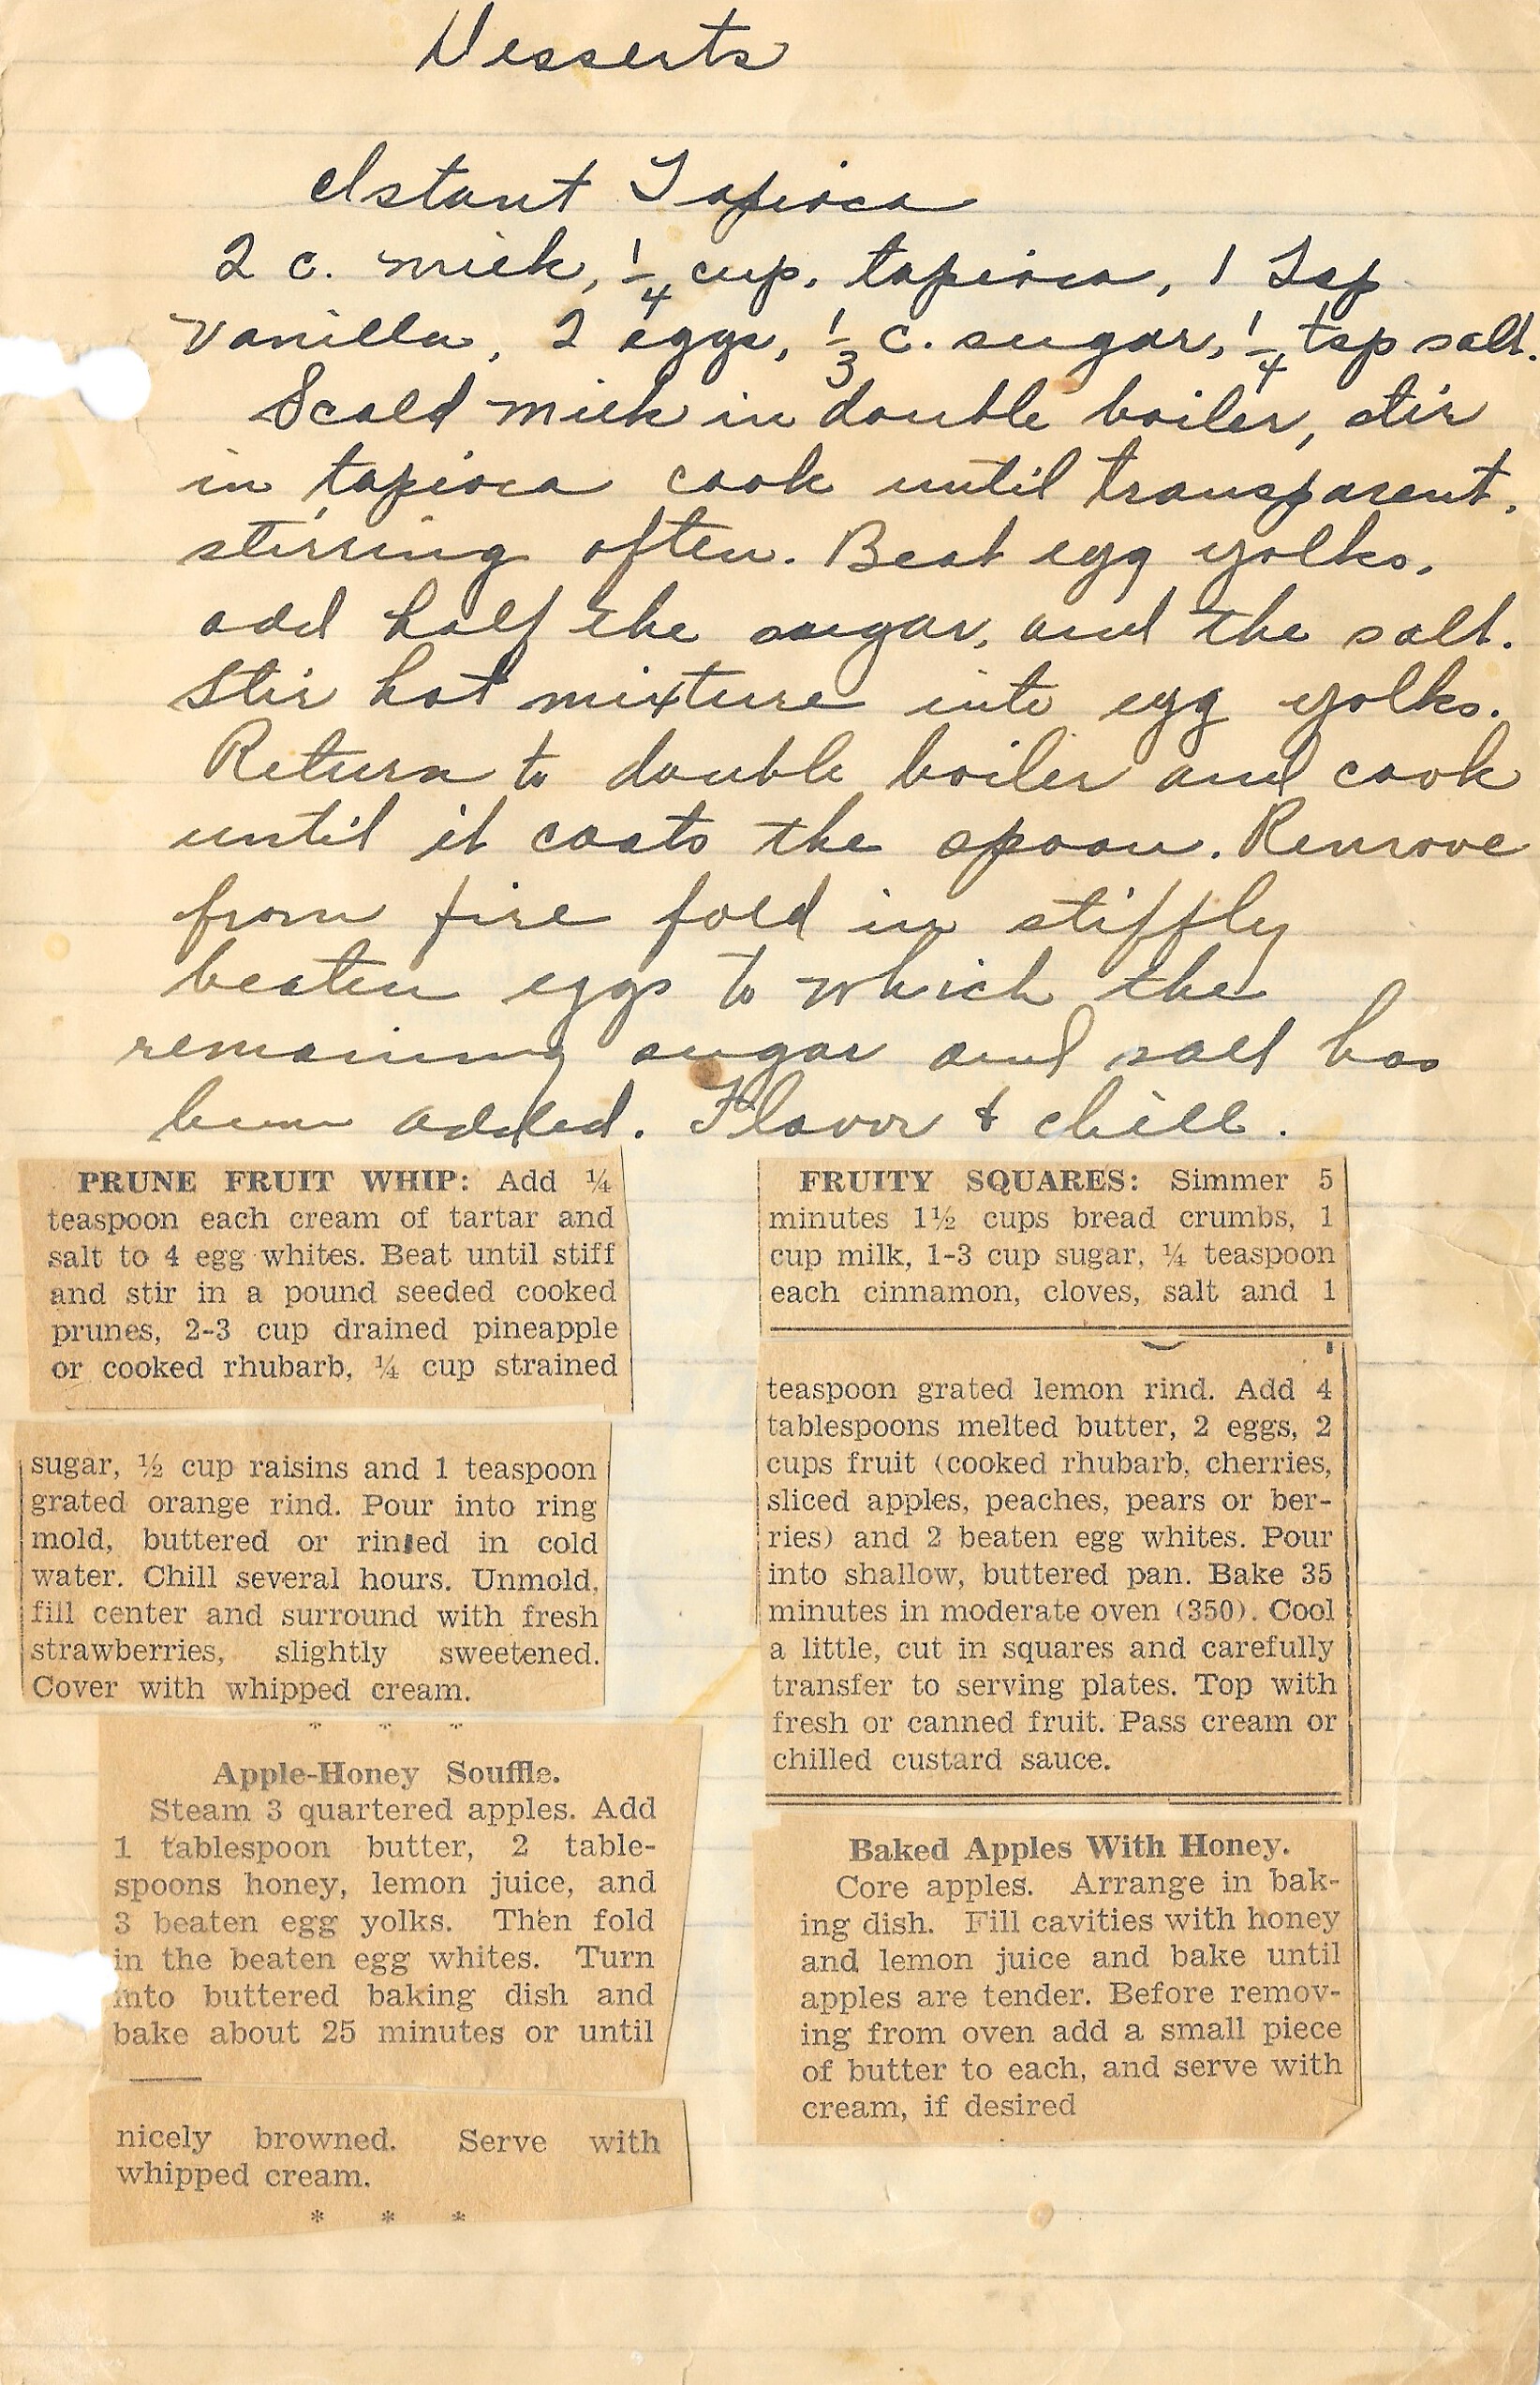 Desserts
Istant Tapioca
2 c. milk, 1/4 cup. tapioca, 1 Tsp
vanilla, 2 eggs, 1/3 c. sugar, 1/4 tsp salt.
Scald milk in double boiler, stir
in tapioca cook until transparent,
stirring often. Beat egg yolks.
add half the sugar, and the salt.
Stir hot mixture into egg yolks.
Return to double boiler and cook
until it coats the spoon. Remove
from fire fold in stiffly
beaten eggs to which the
remaining sugar and salt has
been added. Flavor & chill.
PRUNE FRUIT WHIP: Add ¼
teaspoon each cream of tartar and
salt to 4 egg whites. Beat until stiff
and stir in a pound seeded cooked
prunes, 2-3 cup drained pineapple
or cooked rhubarb, ¼ cup strained
sugar, ½ cup raisins and 1 teaspoon
grated orange rind. Pour into ring
mold, buttered or rinsed in cold
water. Chill several hours. Unmold,
fill center and surround with fresh
strawberries, slightly sweetened.
Cover with whipped cream.
* * *
Apple-Honey Souffle.
Steam 3 quartered apples. Add
1 tablespoon butter, 2 table-
spoons honey, lemon juice, and
3 beaten egg yolks. Then fold
in the beaten egg whites. Turn
into buttered baking dish and
bake about 25 minutes or until
nicely browned. Serve with
whipped cream.
* * *
FRUITY SQUARES: Simmer 5
minutes 1½ cups bread crumbs, 1
cup milk, 1-3 cup sugar, ¼ teaspoon
each cinnamon, cloves, salt and 1
teaspoon grated lemon rind. Add 4
tablespoons melted butter, 2 eggs, 2
cups fruit (cooked rhubarb, cherries,
sliced apples, peaches, pears or ber-
ries) and 2 beaten egg whites. Pour
into shallow, buttered pan. Bake 35
minutes in moderate oven (350). Cool
a little, cut in squares and carefully
transfer to serving plates. Top with
fresh or canned fruit. Pass cream or
chilled custard sauce.
Baked Apples With Honey.
Core apples. Arrange in bak-
ing dish. Fill cavities with honey
and lemon juice and bake until
apples are tender. Before remov-
ing from oven add a small piece
of butter to each, and serve with
cream, if desired